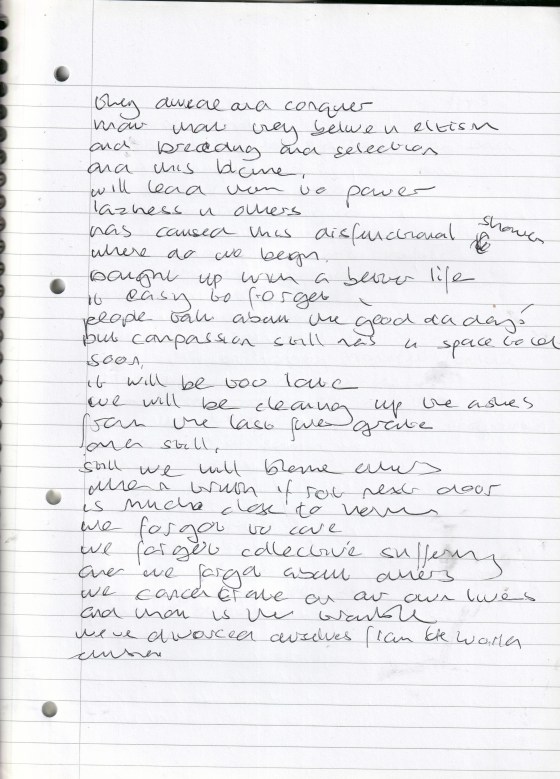 they divide and conquer
now now they believe n eletism
and breeding and selection
and this blame,
will lead them to power
laziness n others
has caused this disfunctional
where do we begin.
bought up with a better life
it easy to forget
people talk about the good old days'
but compassion still has a space
soon,
it will be too late
we will be clearing up the ashes
from the last fire grate
and still,
still we will blame others
when n truth if not next door
is much close to
we forget to care
we forget collective suffering
and we forget about others
we concentrate on ar own lives
and that is the trouble
we've divorced ourselves from the world